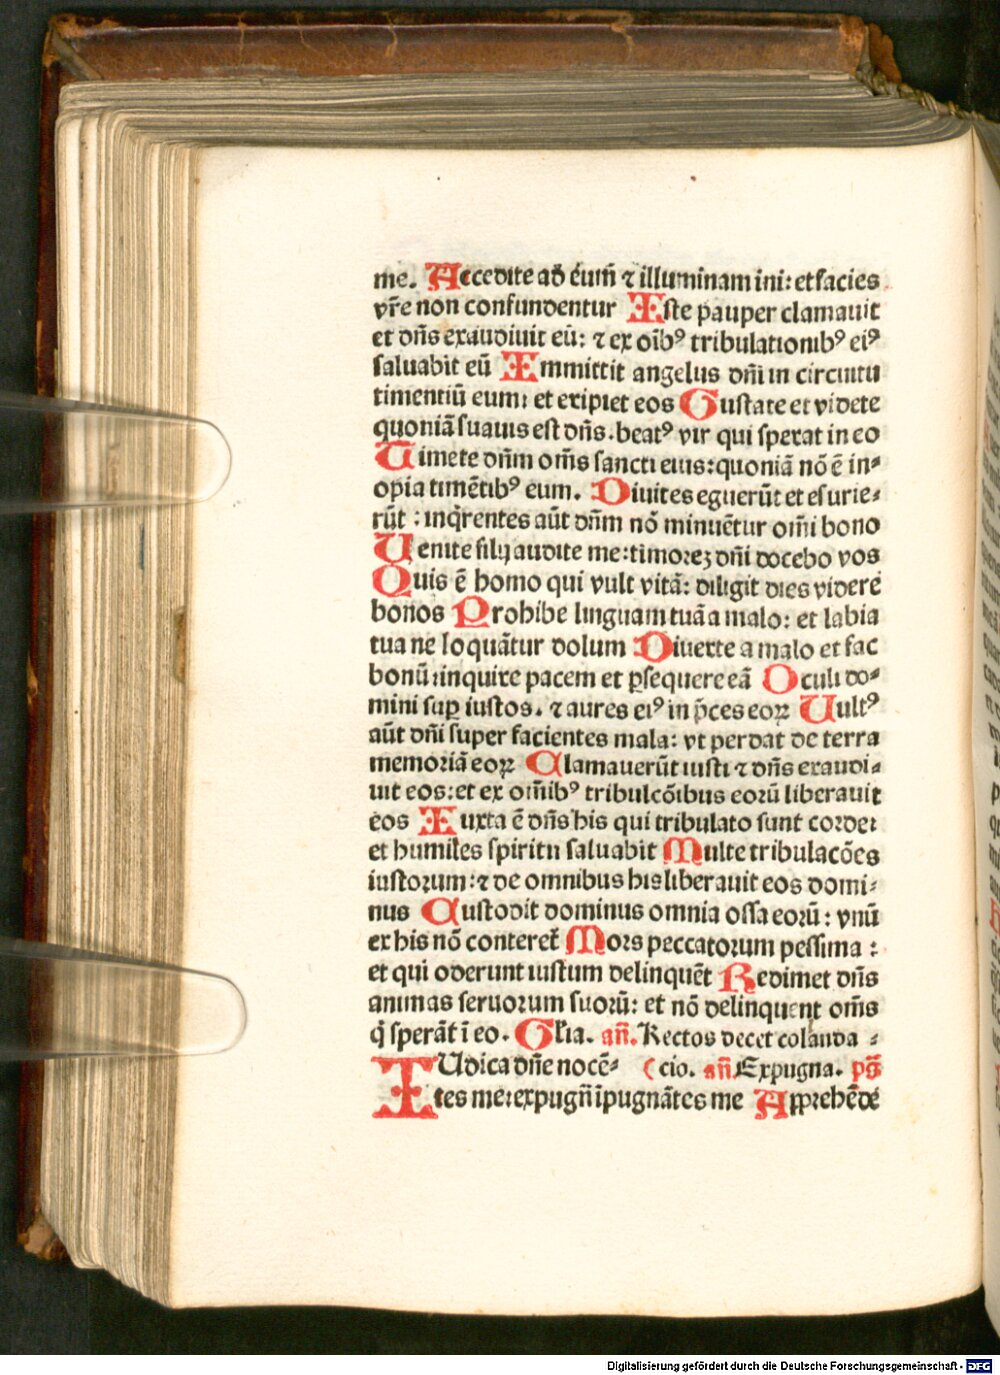 me. Accedite ad eum̄ ⁊ illuminam ini: et facies
vr̄e non confundentur Iste pauper clamauit
et dn̄s exaudiuit eū: ⁊ ex oīb⁹ tribulationib⁹ ei⁹
saluabit eū Immittit angelus dn̄i in circuitu
timentiū eum: et eripiet eos Gustate et videte
quoniā suauis est dn̄s. beat⁹ vir qui sperat in eo
Timete dn̄m om̄s sancti eius: quoniā nō ē in⸗
opia timētib⁹ eum. Diuites eguerūt et esurie⸗
rūt: inqͥrentes aūt dn̄m nō minuētur om̄i bono
Uenite filij audite me: timoreꝫ dn̄i docebo vos
Quis ē homo qui vult vitā: diligit dies videre
bonos Prohibe linguam tuā a malo: et labia
tua ne loquātur dolum Diuerte a malo et fac
bonū: inquire pacem et ꝑsequere eā Oculi do⸗
mini suꝑ iustos. ⁊ aures ei⁹ in p̄ces eoꝝ Uult⁹
aūt dn̄i super facientes mala: vt perdat de terra
memoriā eoꝝ Clamauerūt iusti ⁊ dn̄s exaudi⸗
uit eos: et ex om̄ib⁹ tribulcōībus eorū liberauit
eos Iuxta ē dn̄s his qui tribulato sunt corde:
et humiles spiritu saluabit Multe tribulacōes
iustorum: ⁊ de omnibus his liberauit eos domi⸗
nus Custodit dominus omnia ossa eorū: vnū
ex his nō conteret̄ Mors peccatorum pessima:
et qui oderunt iustum delinquēt Redimet dn̄s
animas seruorum suorū: et nō delinquent om̄s
q̇ sperāt ī eo. Gl̄ia. an̄. Rectos decet colanda⸗
IUdica dn̄e nocē⸗ (cio. an̄. Expugna. pš
tes me: expugn̄ īpugnātes me Apprehēde
Digitalisierung gefördert durch die Deutsche Forschungsgemeinschaft - DFG